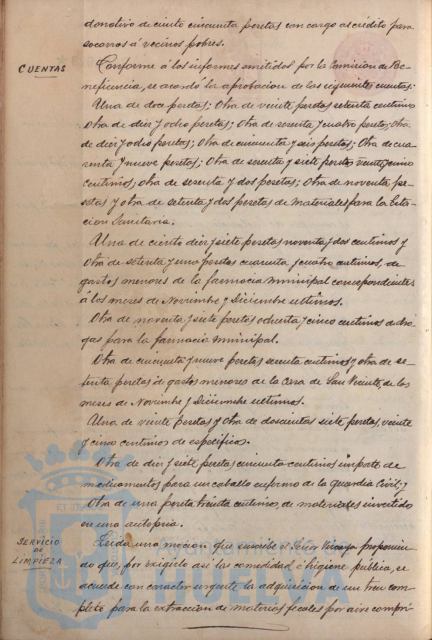 donativo de ciento cincuenta pesetas con cargo al crédito para
socorros á vecinos pobres.
CUENTAS
Conforme á los informes emitidos por la Comisión de Be-
neficencia, se acordó la aprobación de las siguientes cuentas:
Una de doce pesetas; Otra de veinte pesetas setenta céntimos
Otra de diez y ocho pesetas; Otra de sesenta y cuatro pesetas; Otra
de diez y ocho pesetas; Otra de cincuenta y seis pesetas; Otra de cua-
renta y nueve pesetas; Otra de sesenta y siete pesetas veinticinco
céntimos; otra de sesenta y dos pesetas; Otra de noventa pe-
setas y otra de setenta y dos pesetas de materiales para la Esta-
cion Sanitaria.
Una de ciento diez y siete pesetas noventa y dos céntimos y
Otra de setenta y una pesetas cuarenta y cuatro céntimos, de
gastos menores de la farmacia municipal correspondientes
á los meses de Noviembre y Diciembre ultimos.
Otra de noventa y siete pesetas ochenta y cinco céntimos de dro-
gas para la farmacia municipal.
Otra de cincuenta y nueve pesetas sesenta céntimos y otra de se-
tenta pesetas de gastos menores de la Casa de San Vicente, de los
meses de Noviembre y Diciembre ultimos.
Una de veinte pesetas y Otra de doscientas siete pesetas, veinte
y cinco centimos de específicos.
Otra de diez y siete pesetas cincuenta centimos importe de
medicamentos para un caballo enfermo de la Guardia Civil; y
Otra de una peseta treinta centimos, de materiales invertido
en una autopsia.
SERVICIO
DE
LIMPIEZA
Leida una mocion que suscribe el Señor Vizcaya proponien-
do que, por exigirlo así la comodidad é higiene publica, se
acuerde con caracter urgente la adquisicion de un tren com-
pleto para la extraccion de materias fecales por aire compri-